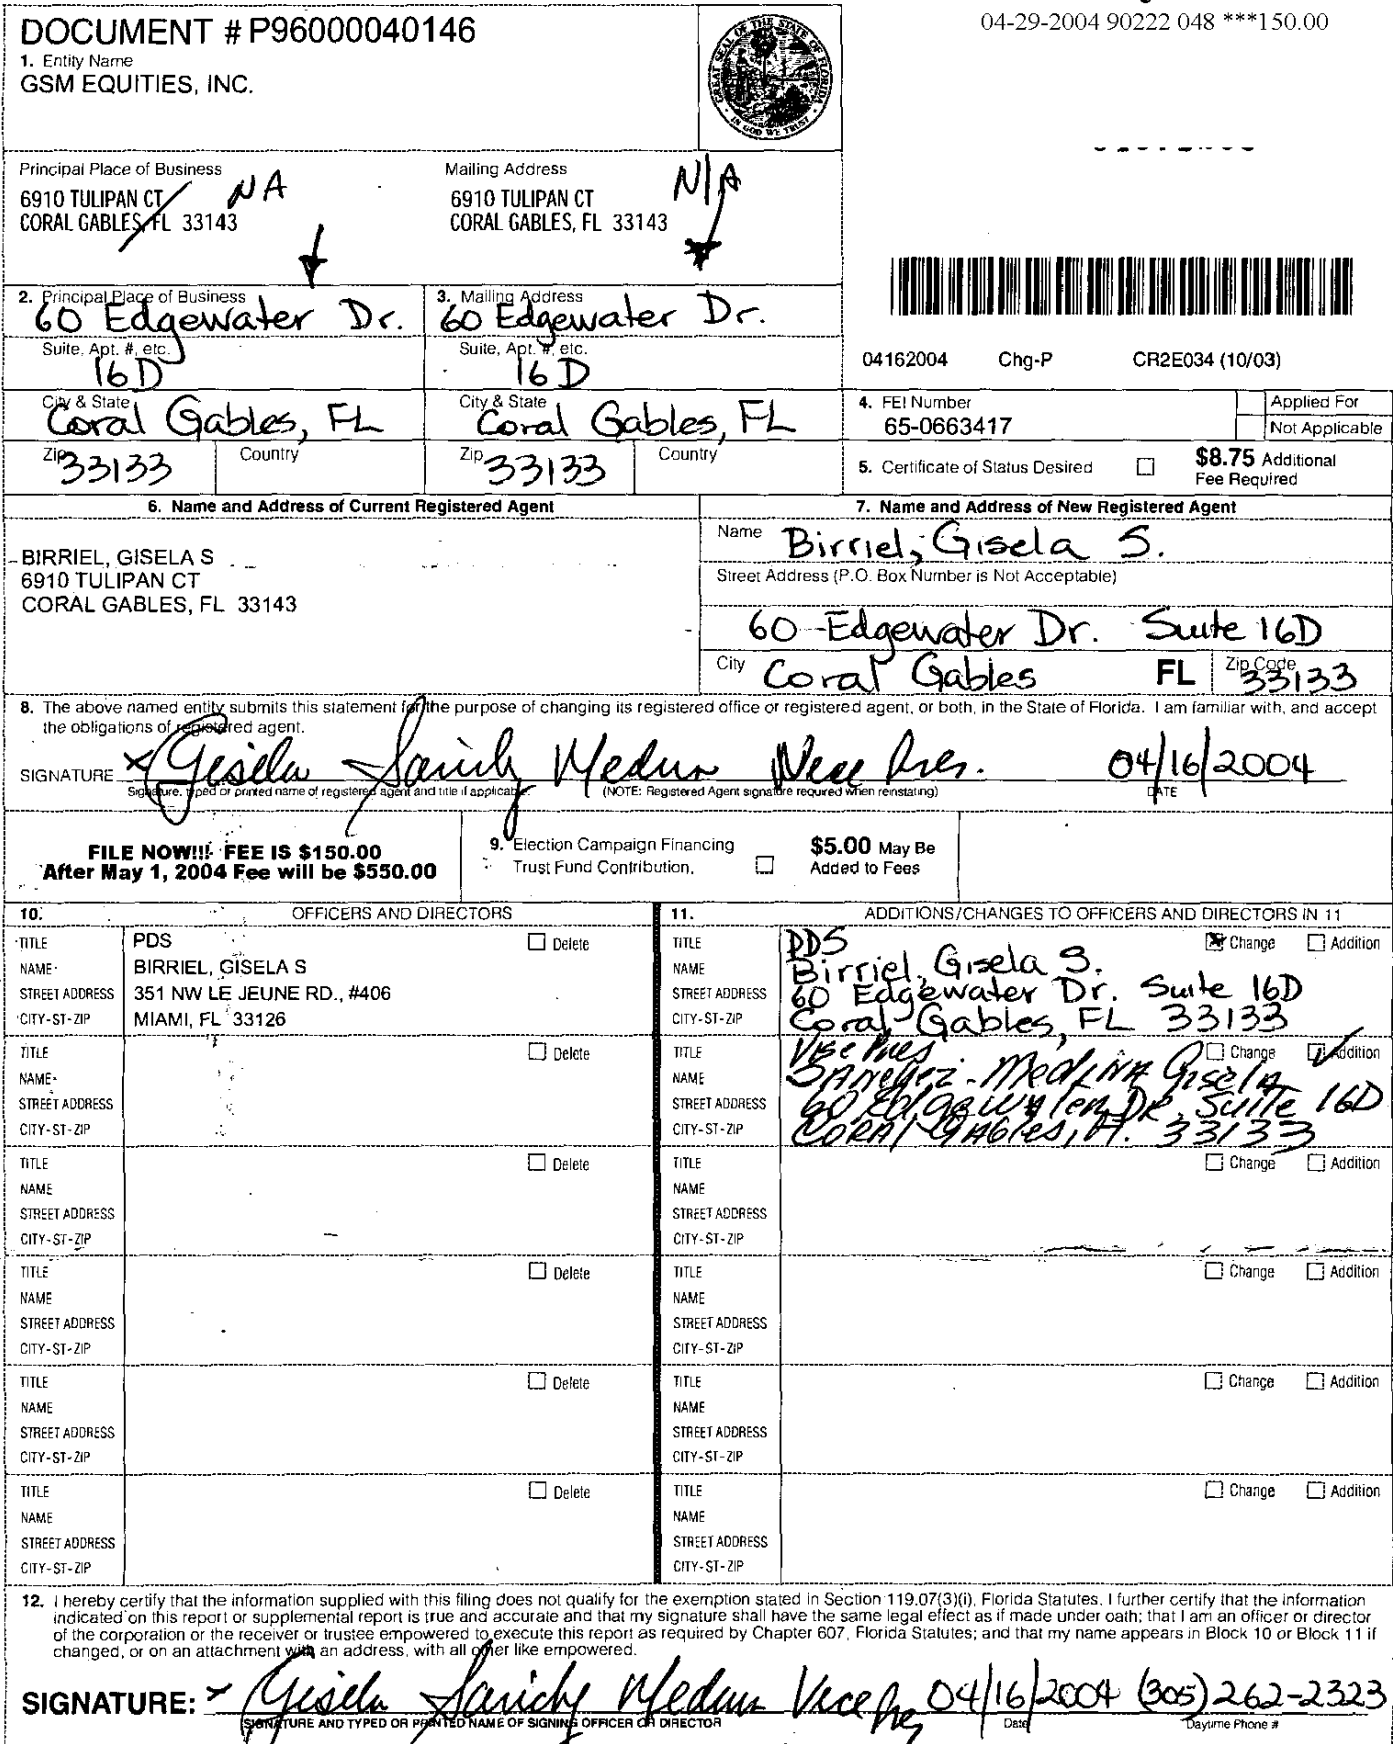 04-29-2004 90222 048 ***150.00
DOCUMENT # P96000040146
1. Entity Name
GSM EQUITIES, INC.
GREAT SEAL OF THE STATE OF FLORIDA
IN GOD WE TRUST
Principal Place of Business
6910 TULIPAN CT
CORAL GABLES, FL 33143
NA
Mailing Address
6910 TULIPAN CT
CORAL GABLES, FL 33143
N/A
2. Principal Place of Business
60 Edgewater Dr.
Suite, Apt. #, etc.
16D
City & State
Coral Gables, FL
Zip 33133
Country
3. Mailing Address
60 Edgewater Dr.
Suite, Apt. #, etc.
16D
City & State
Coral Gables, FL
Zip 33133
Country
04162004 Chg-P CR2E034 (10/03)
4. FEI Number
65-0663417
Applied For
Not Applicable
5. Certificate of Status Desired
$8.75 Additional
Fee Required
6. Name and Address of Current Registered Agent
BIRRIEL, GISELA S
6910 TULIPAN CT
CORAL GABLES, FL 33143
7. Name and Address of New Registered Agent
Name Birriel, Gisela S.
Street Address (P.O. Box Number is Not Acceptable)
60 Edgewater Dr. Suite 16D
City Coral Gables FL Zip Code 33133
8. The above named entity submits this statement for the purpose of changing its registered office or registered agent, or both, in the State of Florida. I am familiar with, and accept
the obligations of registered agent.
SIGNATURE Gisela 04/16/2004
Signature, typed or printed name of registered agent and title if applicable. (NOTE: Registered Agent signature required when reinstating) DATE
FILE NOW!!! FEE IS $150.00
After May 1, 2004 Fee will be $550.00
9. Election Campaign Financing
Trust Fund Contribution.
$5.00 May Be
Added to Fees
10. OFFICERS AND DIRECTORS
TITLE PDS Delete
NAME BIRRIEL, GISELA S
STREET ADDRESS 351 NW LE JEUNE RD., #406
CITY-ST-ZIP MIAMI, FL 33126
TITLE Delete
NAME
STREET ADDRESS
CITY-ST-ZIP
TITLE Delete
NAME
STREET ADDRESS
CITY-ST-ZIP
TITLE Delete
NAME
STREET ADDRESS
CITY-ST-ZIP
TITLE Delete
NAME
STREET ADDRESS
CITY-ST-ZIP
TITLE Delete
NAME
STREET ADDRESS
CITY-ST-ZIP
11. ADDITIONS/CHANGES TO OFFICERS AND DIRECTORS IN 11
TITLE PDS Change Addition
NAME Birriel, Gisela S.
STREET ADDRESS 60 Edgewater Dr. Suite 16D
CITY-ST-ZIP Coral Gables, FL 33133
TITLE Vice Pres Change Addition
NAME Sanchez-Medina Gisela
STREET ADDRESS 60 Edgewater DR, Suite 16D
CITY-ST-ZIP CORAL GAbles, Fl. 33133
TITLE Change Addition
NAME
STREET ADDRESS
CITY-ST-ZIP
TITLE Change Addition
NAME
STREET ADDRESS
CITY-ST-ZIP
TITLE Change Addition
NAME
STREET ADDRESS
CITY-ST-ZIP
TITLE Change Addition
NAME
STREET ADDRESS
CITY-ST-ZIP
12. I hereby certify that the information supplied with this filing does not qualify for the exemption stated in Section 119.07(3)(i), Florida Statutes. I further certify that the information
indicated on this report or supplemental report is true and accurate and that my signature shall have the same legal effect as if made under oath; that I am an officer or director
of the corporation or the receiver or trustee empowered to execute this report as required by Chapter 607, Florida Statutes; and that my name appears in Block 10 or Block 11 if
changed, or on an attachment with an address, with all other like empowered.
SIGNATURE: Gisela Vice Pres 04/16/2004 (305) 262-2323
SIGNATURE AND TYPED OR PRINTED NAME OF SIGNING OFFICER OR DIRECTOR Date Daytime Phone #